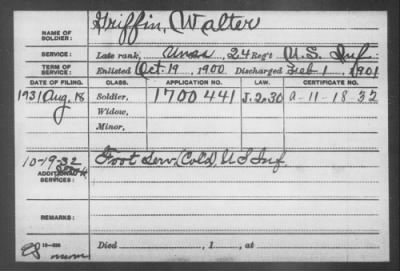 NAME OF SOLDIER: Griffin, Walter
SERVICE: Late rank, 24 Reg't U.S. Inf
TERM OF SERVICE: Enlisted Oct. 19, 1900 Discharged Feb 1, 1901
DATE OF FILING. CLASS. APPLICATION NO. LAW. CERTIFICATE NO.
1931 Aug. 18 Soldier, 1700441 J.2.30 a-11-18-32
Widow,
Minor,
10-19-32 Foot Serv. (Cold), U S Inf.
ADDITIONAL SERVICES:
REMARKS:
Died , 1 , at